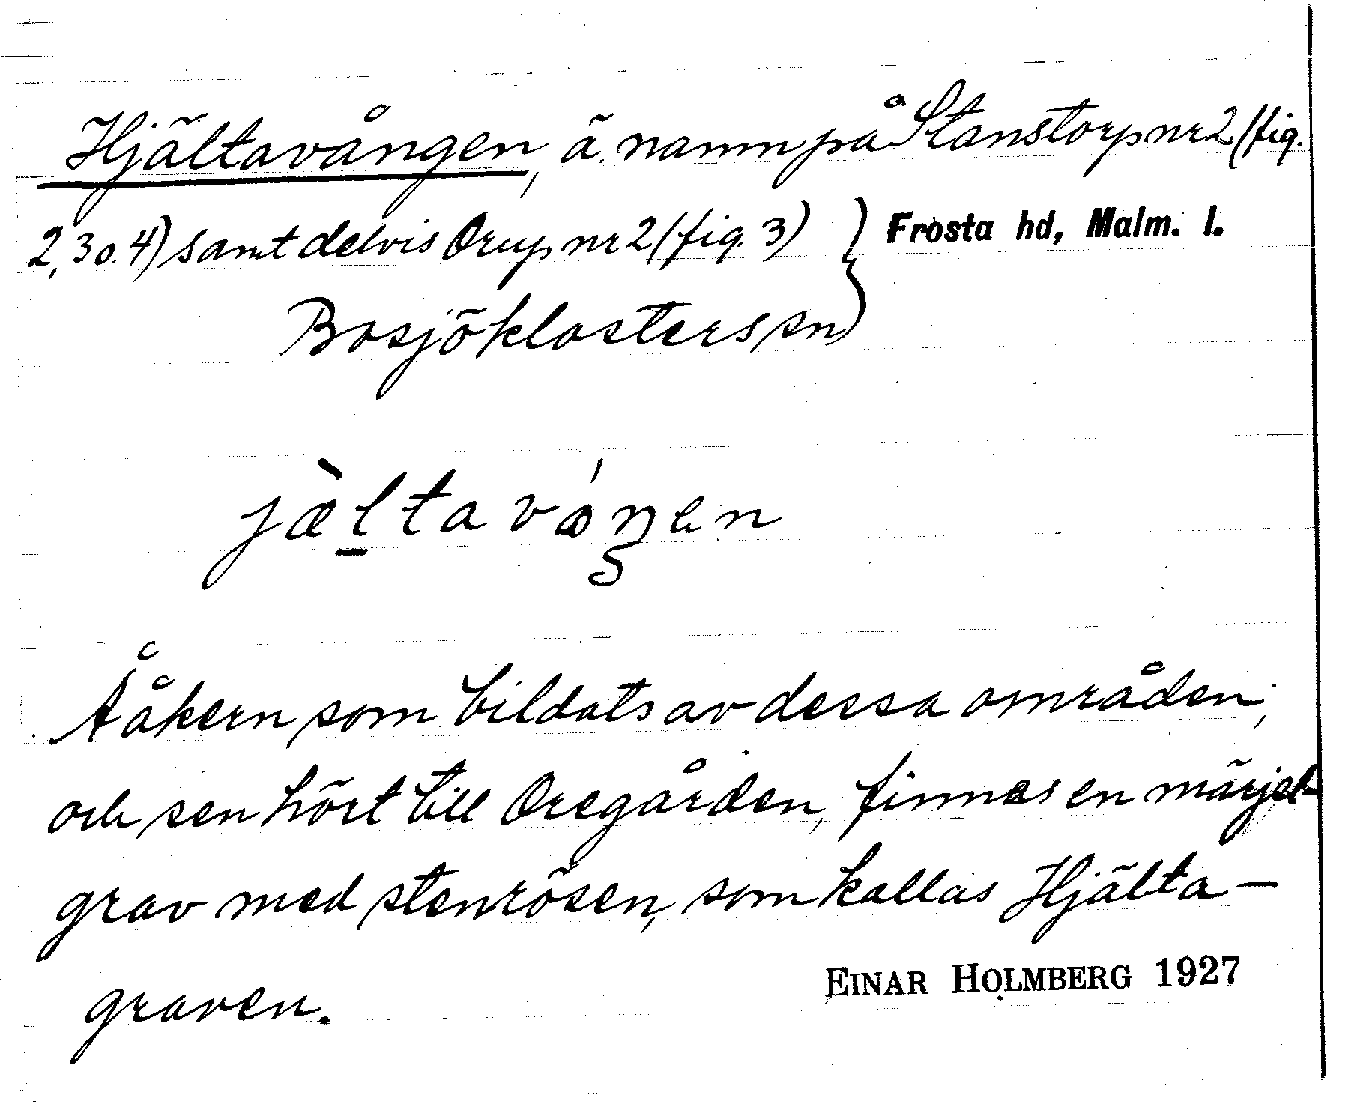 Hjältavången, ä. namn på Stanstorp nr 2 (fig.
2, 3 o. 4) samt delvis Orup nr 2 (fig. 3) } Frosta hd, Malm. l.
Bosjöklosters sn
jæ̀ltavåŋen
Å åkern som bildats av dessa områden,
och sen hört till Oregården, finnes en märjel-
grav med stenrösen, som kallas Hjälta-
graven.
EINAR HOLMBERG 1927